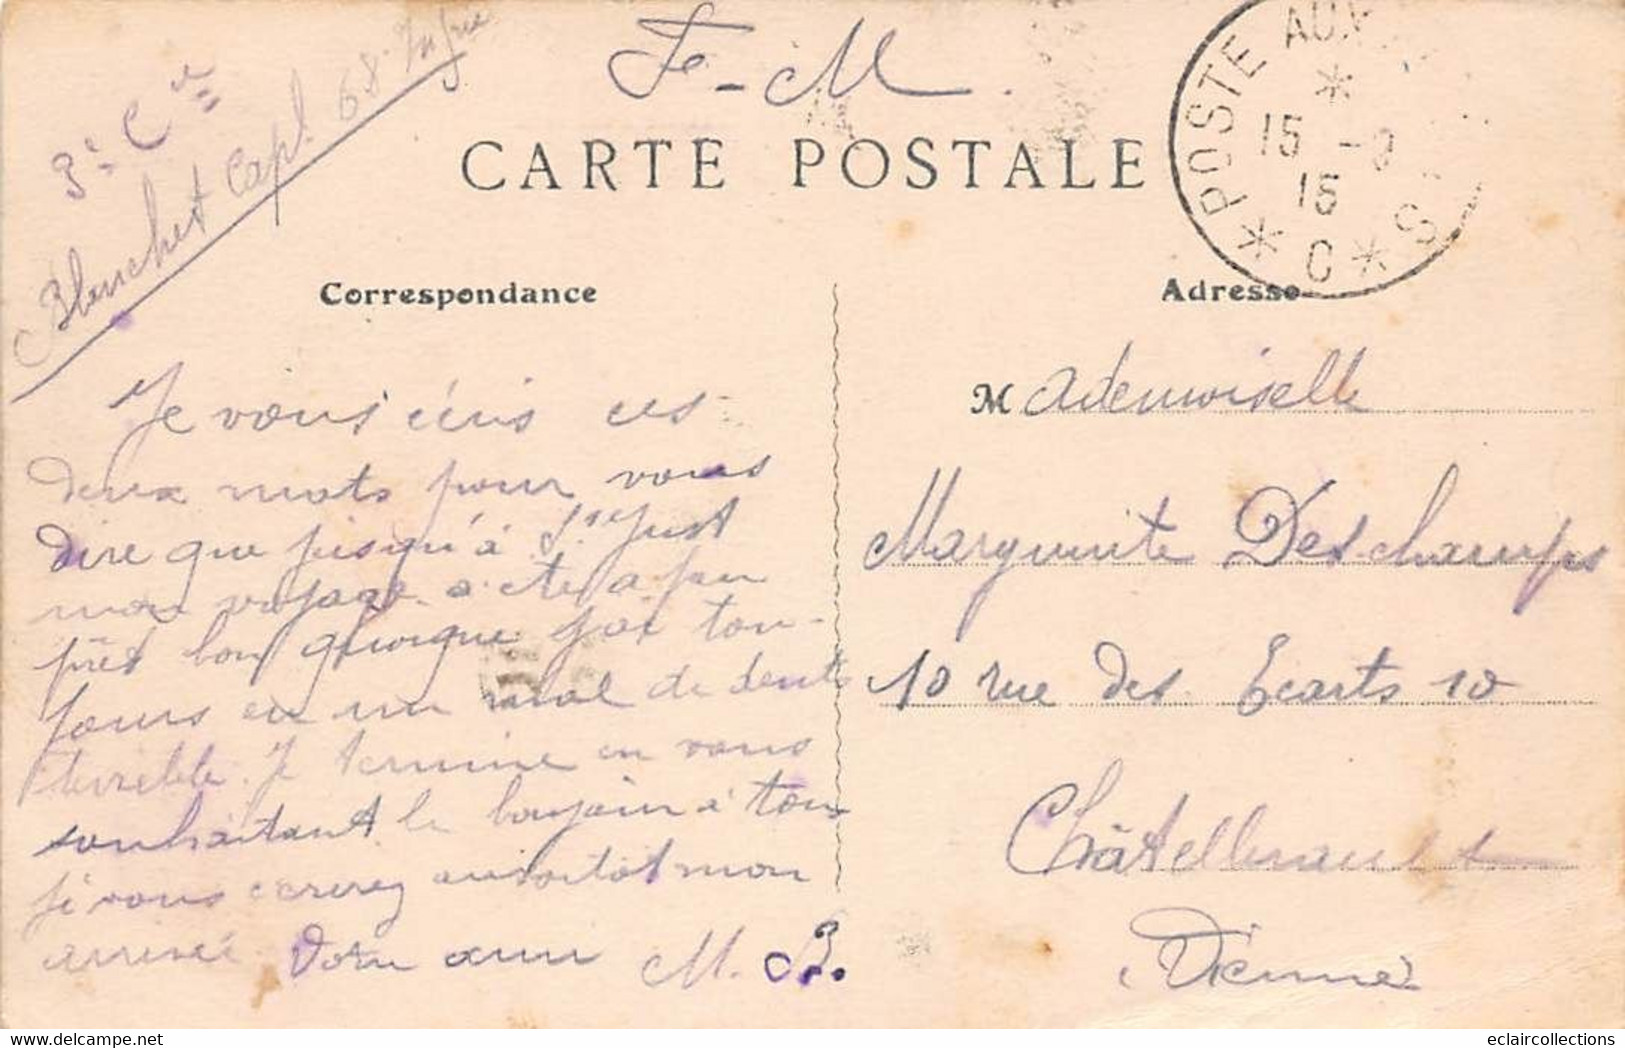 F - M.
3e Cie
Blanchet Capl. 68 Infrie
CARTE POSTALE
POSTE AUX
15 - 9
15
* C * S
Correspondance
Adresse
Je vous écris ces
deux mots pour vous
dire que jusqu'à St Just
mon voyage a été a peu
près bon quoique j'ai tou-
jours eu un mal de dents
terrible. Je termine en vous
souhaitant le bonjour à tous
je vous écrirez aussitôt mon
arrivée Votre ami M. B.
Mademoiselle
Marguerite Deschamps
10 rue des Ecarts 10
Châtellerault
Vienne
eclaircollections